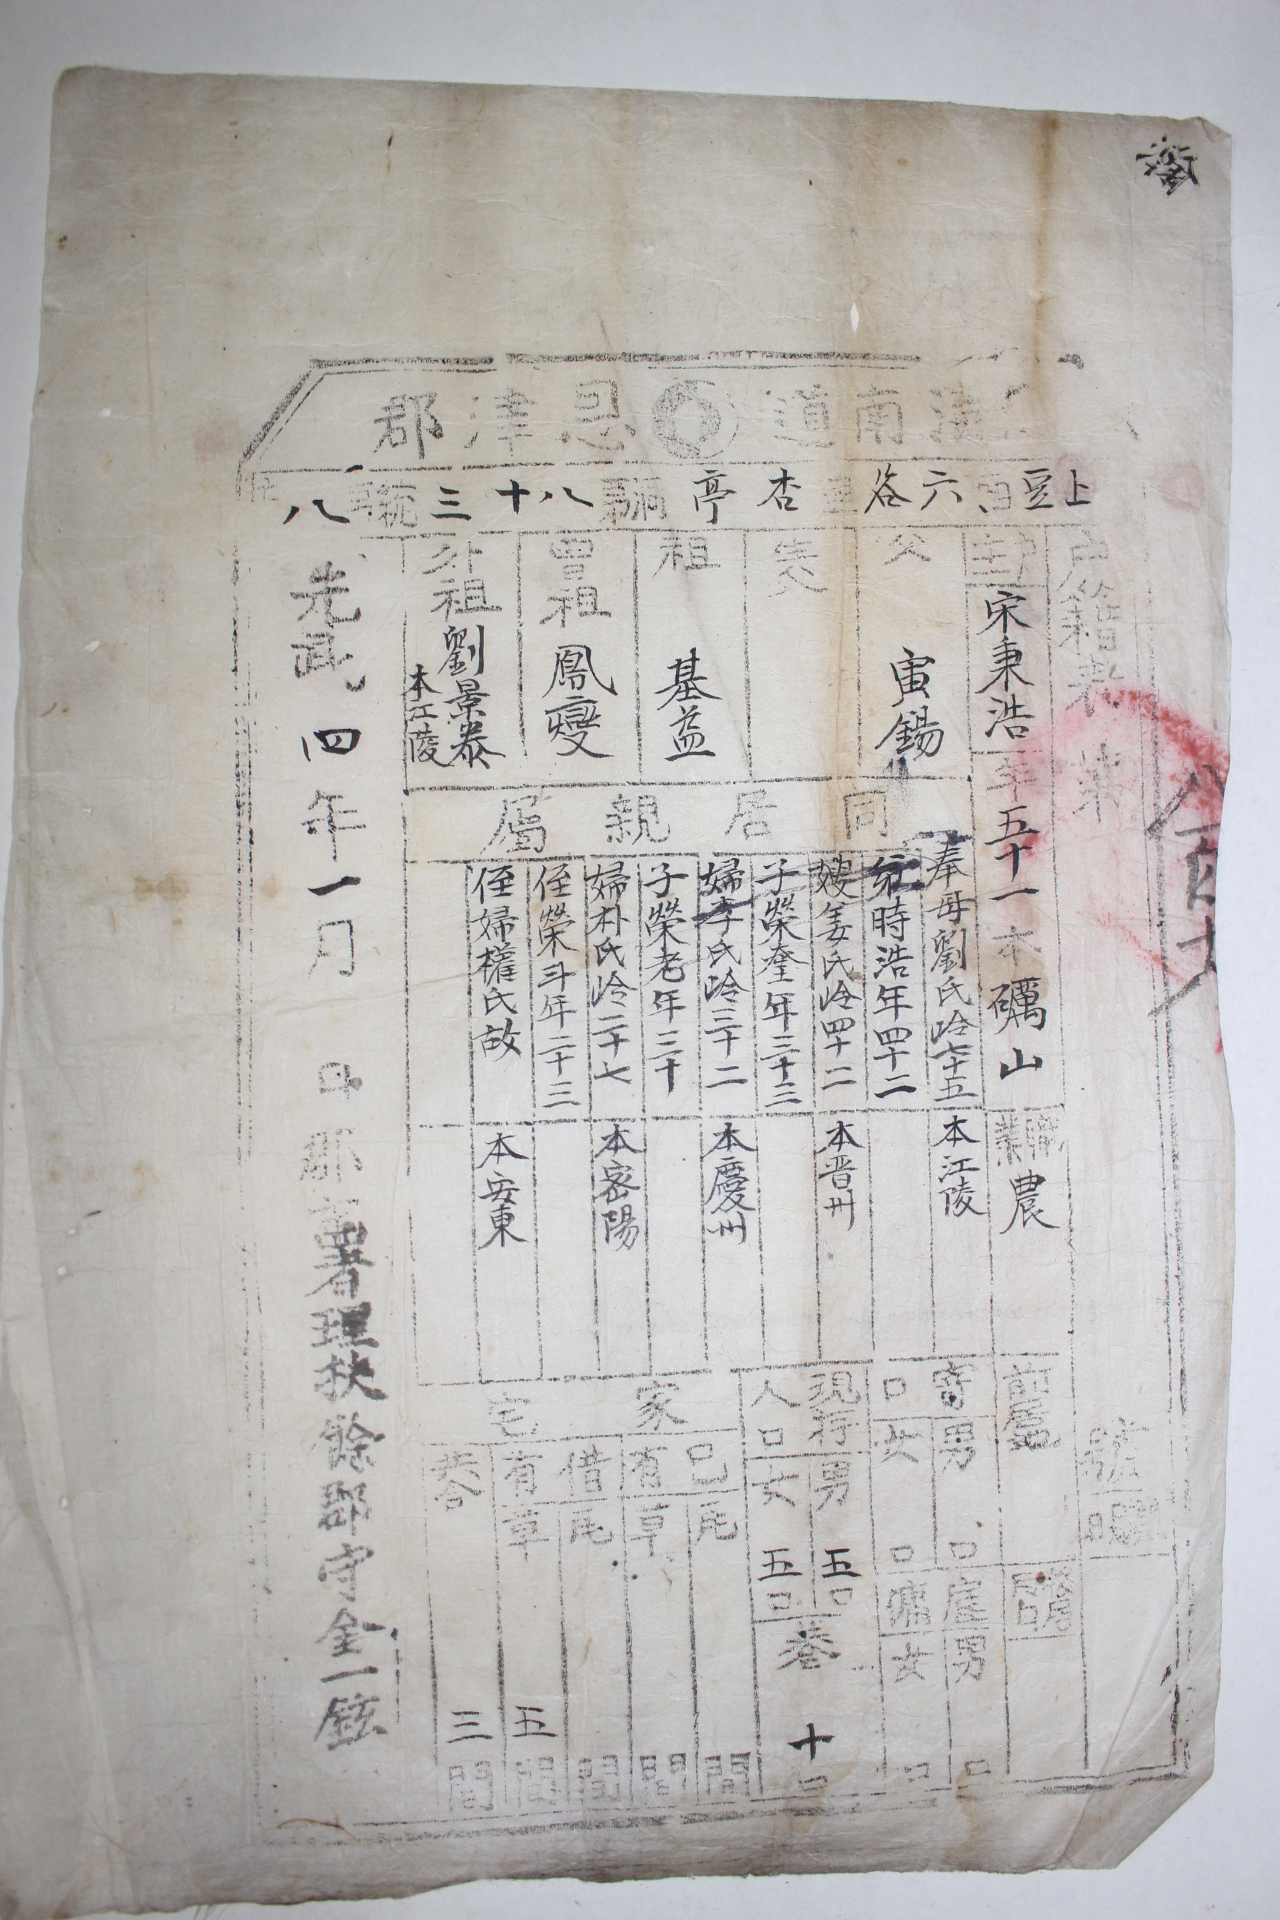 忠淸南道 恩津郡
上豆面六谷里杏亭洞八十三統八戶
戶籍表 第 號
戶主宋秉浩年五十一本礪山職業農
前居
移居
父 寅錫
生父
祖 基益
曾祖 鳳燮
外祖 劉景泰 本江陵
同居親屬
奉母劉氏岭七十五 本江陵
時浩年四十二
嫂姜氏岭四十二 本晋州
子榮奎年三十三
婦李氏岭三十二 本慶州
子榮老年三十
婦朴氏岭二十七 本密陽
侄榮斗年二十三
侄婦權氏故 本安東
寄口 男 口 女 口
雇傭 男 口 女 口
現存人口 男五口 女五口 共十口
家宅
己有 瓦 間 草 間
借有 瓦 間 草五間
共合 三間
光武四年一月 日 郡守署理扶餘郡守金一鉉